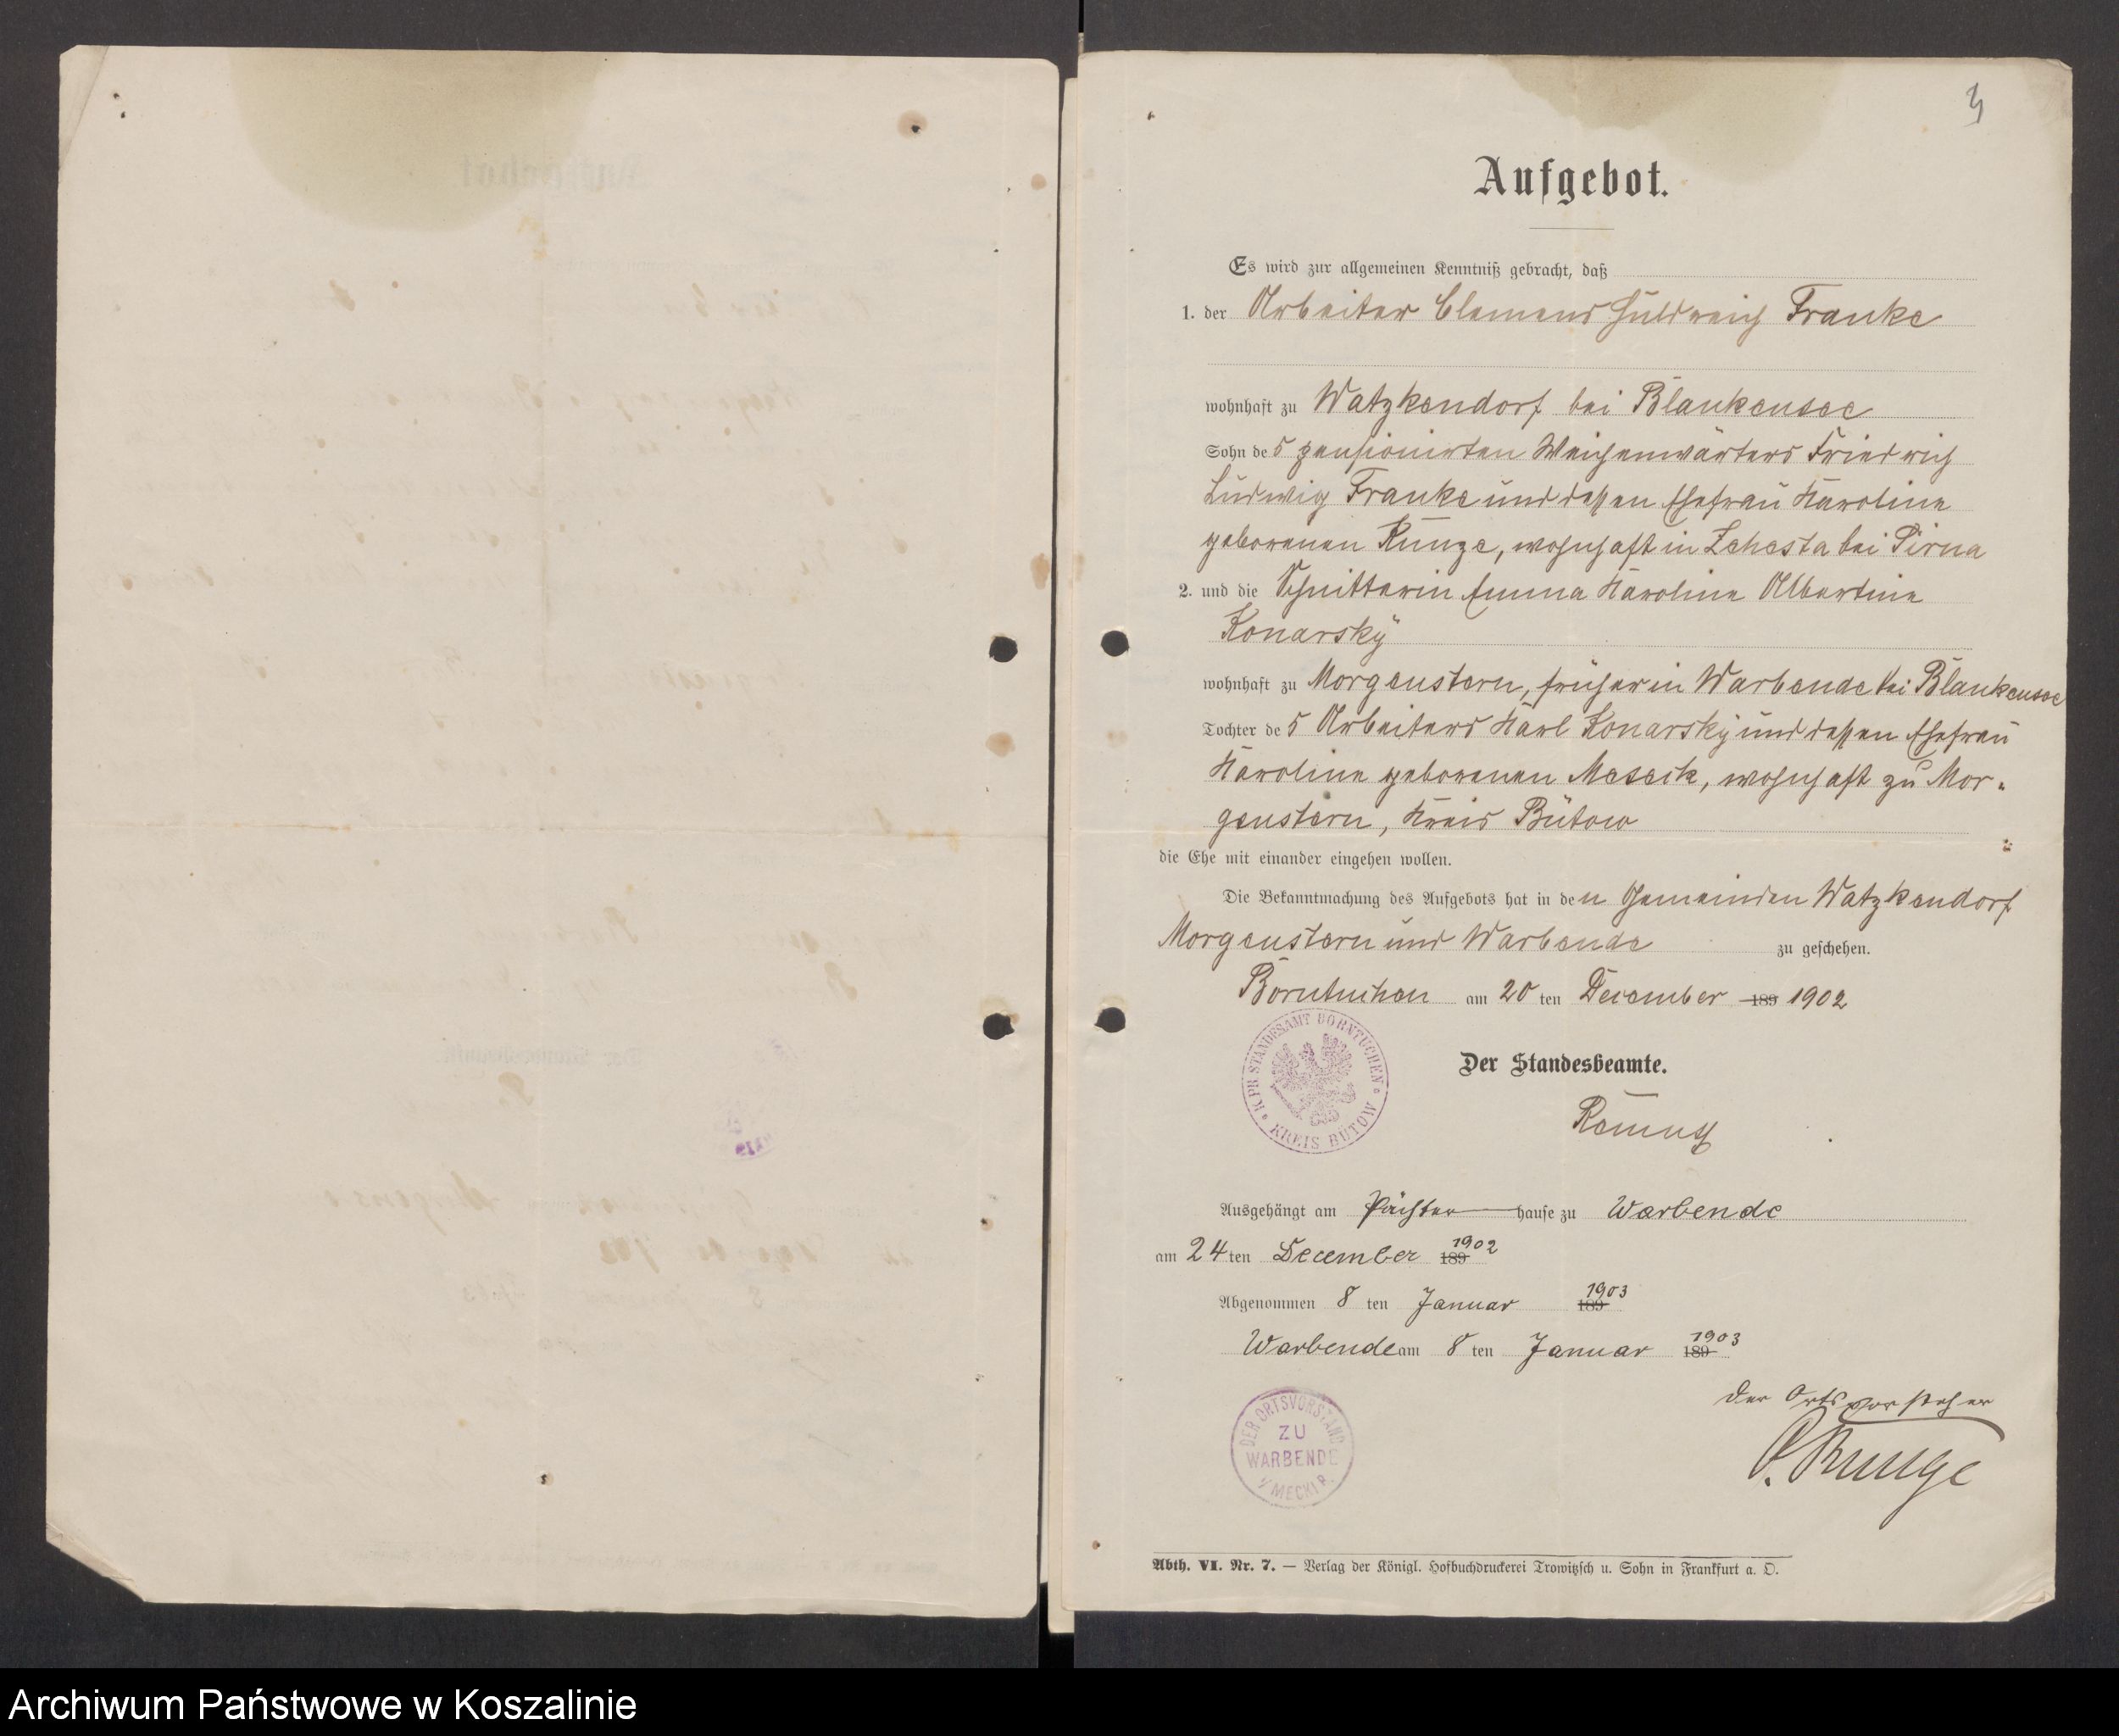 3
Aufgebot.
Es wird zur allgemeinen Kenntniß gebracht, daß
1. der Arbeiter Clemens Huldreich Franke
wohnhaft zu Watzkendorf bei Blankensee
Sohn des pensionirten Weichenwärters Friedrich
Ludwig Franke und dessen Ehefrau Karoline
geborenen Kunze, wohnhaft in Zehesta bei Pirna
2. und die Schnitterin Emma Karoline Albertine
Konarsky
wohnhaft zu Morgenstern, früher in Warbende bei Blankensee
Tochter des Arbeiters Karl Konarsky und dessen Ehefrau
Karoline geborenen Meseck, wohnhaft zu Mor-
genstern, Kreis Bütow
die Ehe mit einander eingehen wollen.
Die Bekanntmachung des Aufgebots hat in den Gemeinden Watzkendorf
Morgenstern und Warbende zu geschehen.
Borntuchen am 20 ten December 189 1902
K. PR. STANDESAMT BORNTUCHEN * KREIS BÜTOW *
Der Standesbeamte.
Remus
Ausgehängt am Pächterhause zu Warbende
am 24 ten December 189 1902
Abgenommen 8 ten Januar 189 1903
Warbende am 8 ten Januar 189 1903
Der Ortsvorsteher
DER ORTSVORSTAND
ZU
WARBENDE
Runge
Abth. VI. Nr. 7. — Verlag der Königl. Hofbuchdruckerei Trowitzsch u. Sohn in Frankfurt a. O.
Archiwum Państwowe w Koszalinie